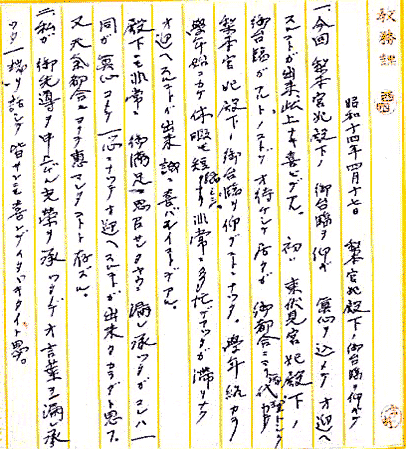 教務課
昭和十四年四月十七日 梨本宮妃殿下ノ御台臨ヲ仰ギテ
一、今回 梨本宮妃殿下ノ 御台臨ヲ仰ギ 真心ヲ込メテオ迎ヘ
スルコトガ出来此上ナキ喜ビデアル。初メ 東伏見宮妃殿下ノ
御台臨ガアルトノコトデオ待チシテ居タガ 御都合ニヨリ
梨本宮妃殿下ノ御台臨ヲ仰グコトトナツタ。学年終カラ
学年始ニカケ休暇モ短ク 非常ニ多忙デアツタガ滞リナク
オ迎ヘスルコトガ出来 誠ニ喜バシイコトデアル。
殿下モ非常ニ 御満足ニ思召サレタヤウ漏レ承ツタガコレハ一
同ガ真心コメテ一心ニナツテオ迎ヘスルコトガ出来タカラダト思フ。
又天気都合ニヨク恵マレタコトト存ズル。
二、私ガ 御先導ヲ申上ゲル光栄ヲ承 ツタノデオ言葉ヲ漏レ承
ツタ一端ヲ話シテ皆サンニモ喜ンデイタダキタイト思フ。